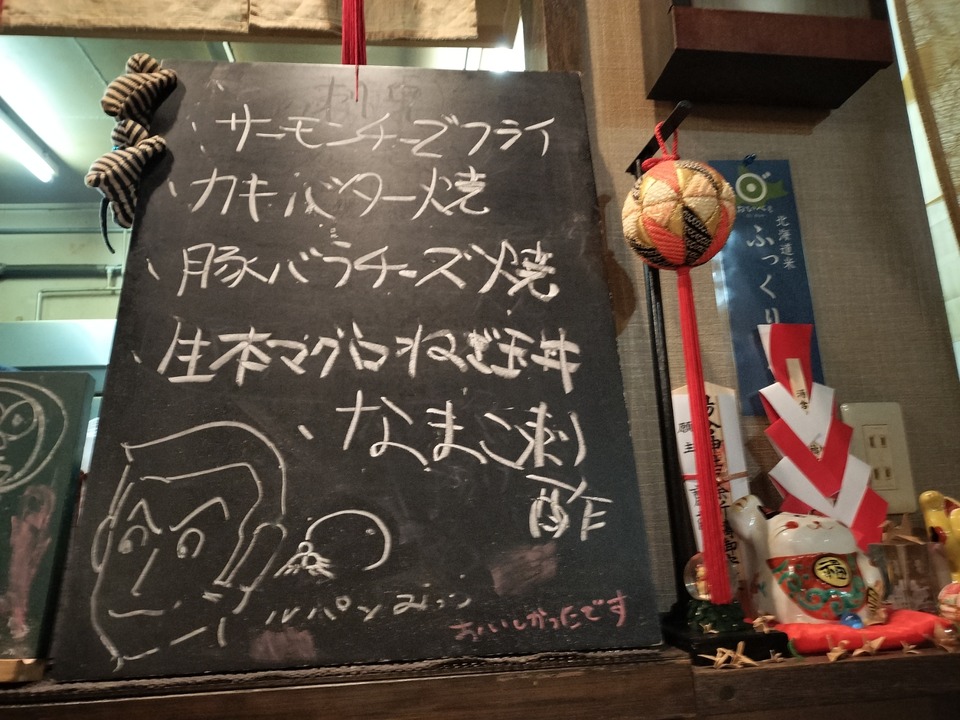 、サーモンチーズフライ
、カキバター焼
、豚バラチーズ焼
、生本マグロねぎ玉丼
、なまこ刺
酢
ルパンみっつ
おいしかったです
北海道米
ふっくり
願主
福